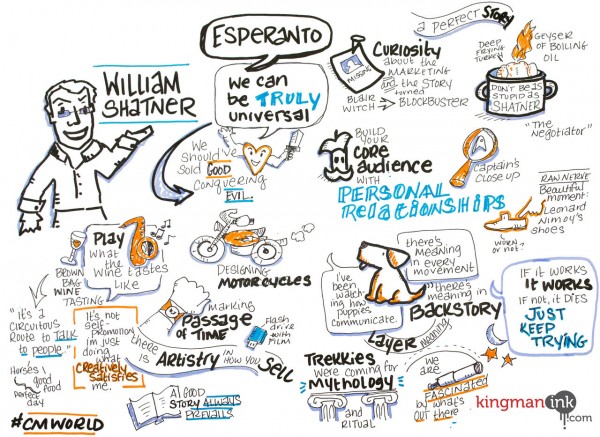 WILLIAM
SHATNER
ESPERANTO
We can
be TRULY
universal
We
should've
sold GOOD
Conquering
EVIL.
MISSING
CURIOSITY
about the
MARKETING
and the STORY
turned
BLAIR
WITCH → BLOCKBUSTER
a PERFECT STORY
DEEP
FRYING
TURKEY
GEYSER
OF BOILING
OIL
DON'T BE AS
STUPID AS
SHATNER
"THE
Negotiator"
BUILD
YOUR
CORE
audience
WITH
PERSONAL
RELATIONSHIPS
Captain's
Close up
RAW NERVE
Beautiful
moment:
Leonard
Nimoy's
shoes
WORN
or not?
Play
What
the
Wine tastes
Like
BROWN
BAG
WINE
TASTING
DESIGNING
MOTORCYCLES
"it's a
CIRCUITOUS
Route to TALK
to people."
It's not
self
PROMOTION
i'm just
doing
what
CREATIVELY
satisfies
me.
Horses 1 good
good food
perfect
day
#CMWORLD
marking
PASSAGE
OF TIME
Flash
drive
with
FILM
there
is
Artistry IN HOW YOU SELL
A GOOD
STORY ALWAYS
PREVAILS
I've
been
watch-
ing
how
puppies
communicate.
there's
meaning
in every
movement
there's
meaning in
BACKSTORY
Layer meaning
TREKKIES
were coming for
MYTHOLOGY
and
RITUAL
We
are
FASCINATED
by what's
OUT there
IF IT WORKS
IT WORKS
IF not, it DIES
JUST
KEEP
TRYING
kingmanink
.com